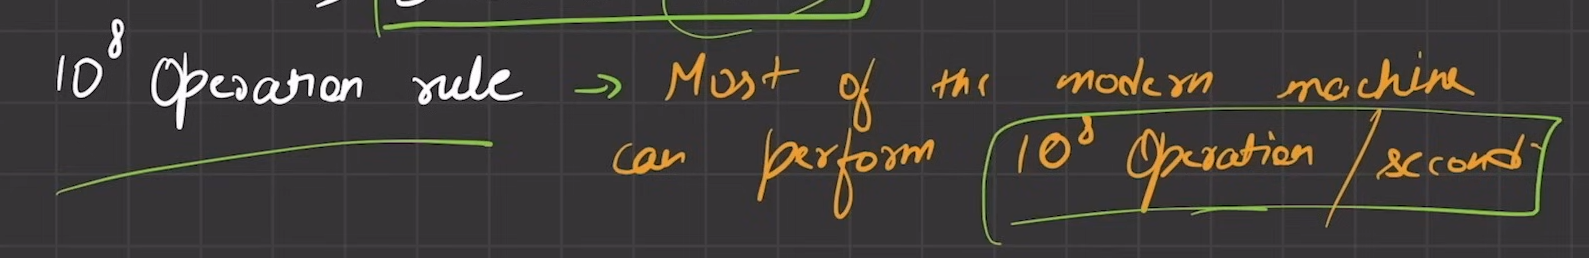 10⁸ Operation rule → Most of the modern machine
can perform 10⁸ Operation / second